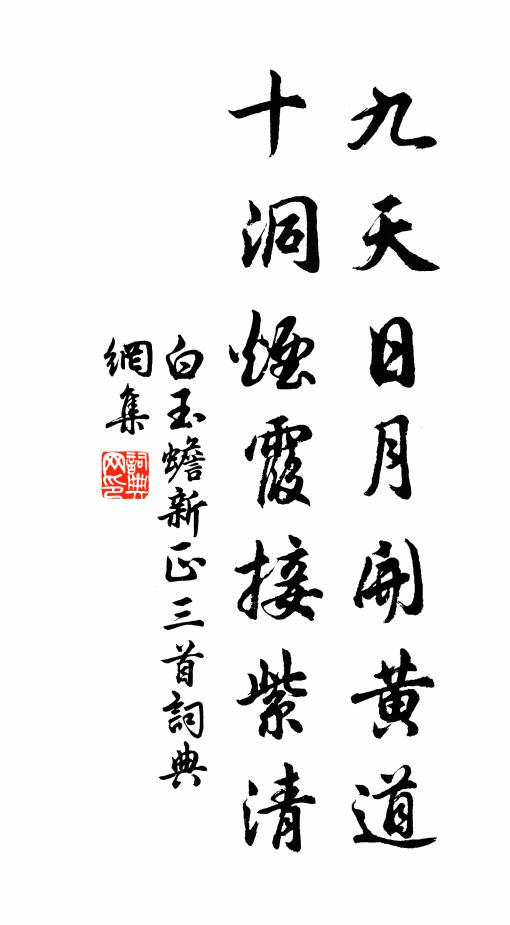 九天日月開黃道
十洞煙霞接紫清
白玉蟾新正三首詞典
網集
詞典
网印